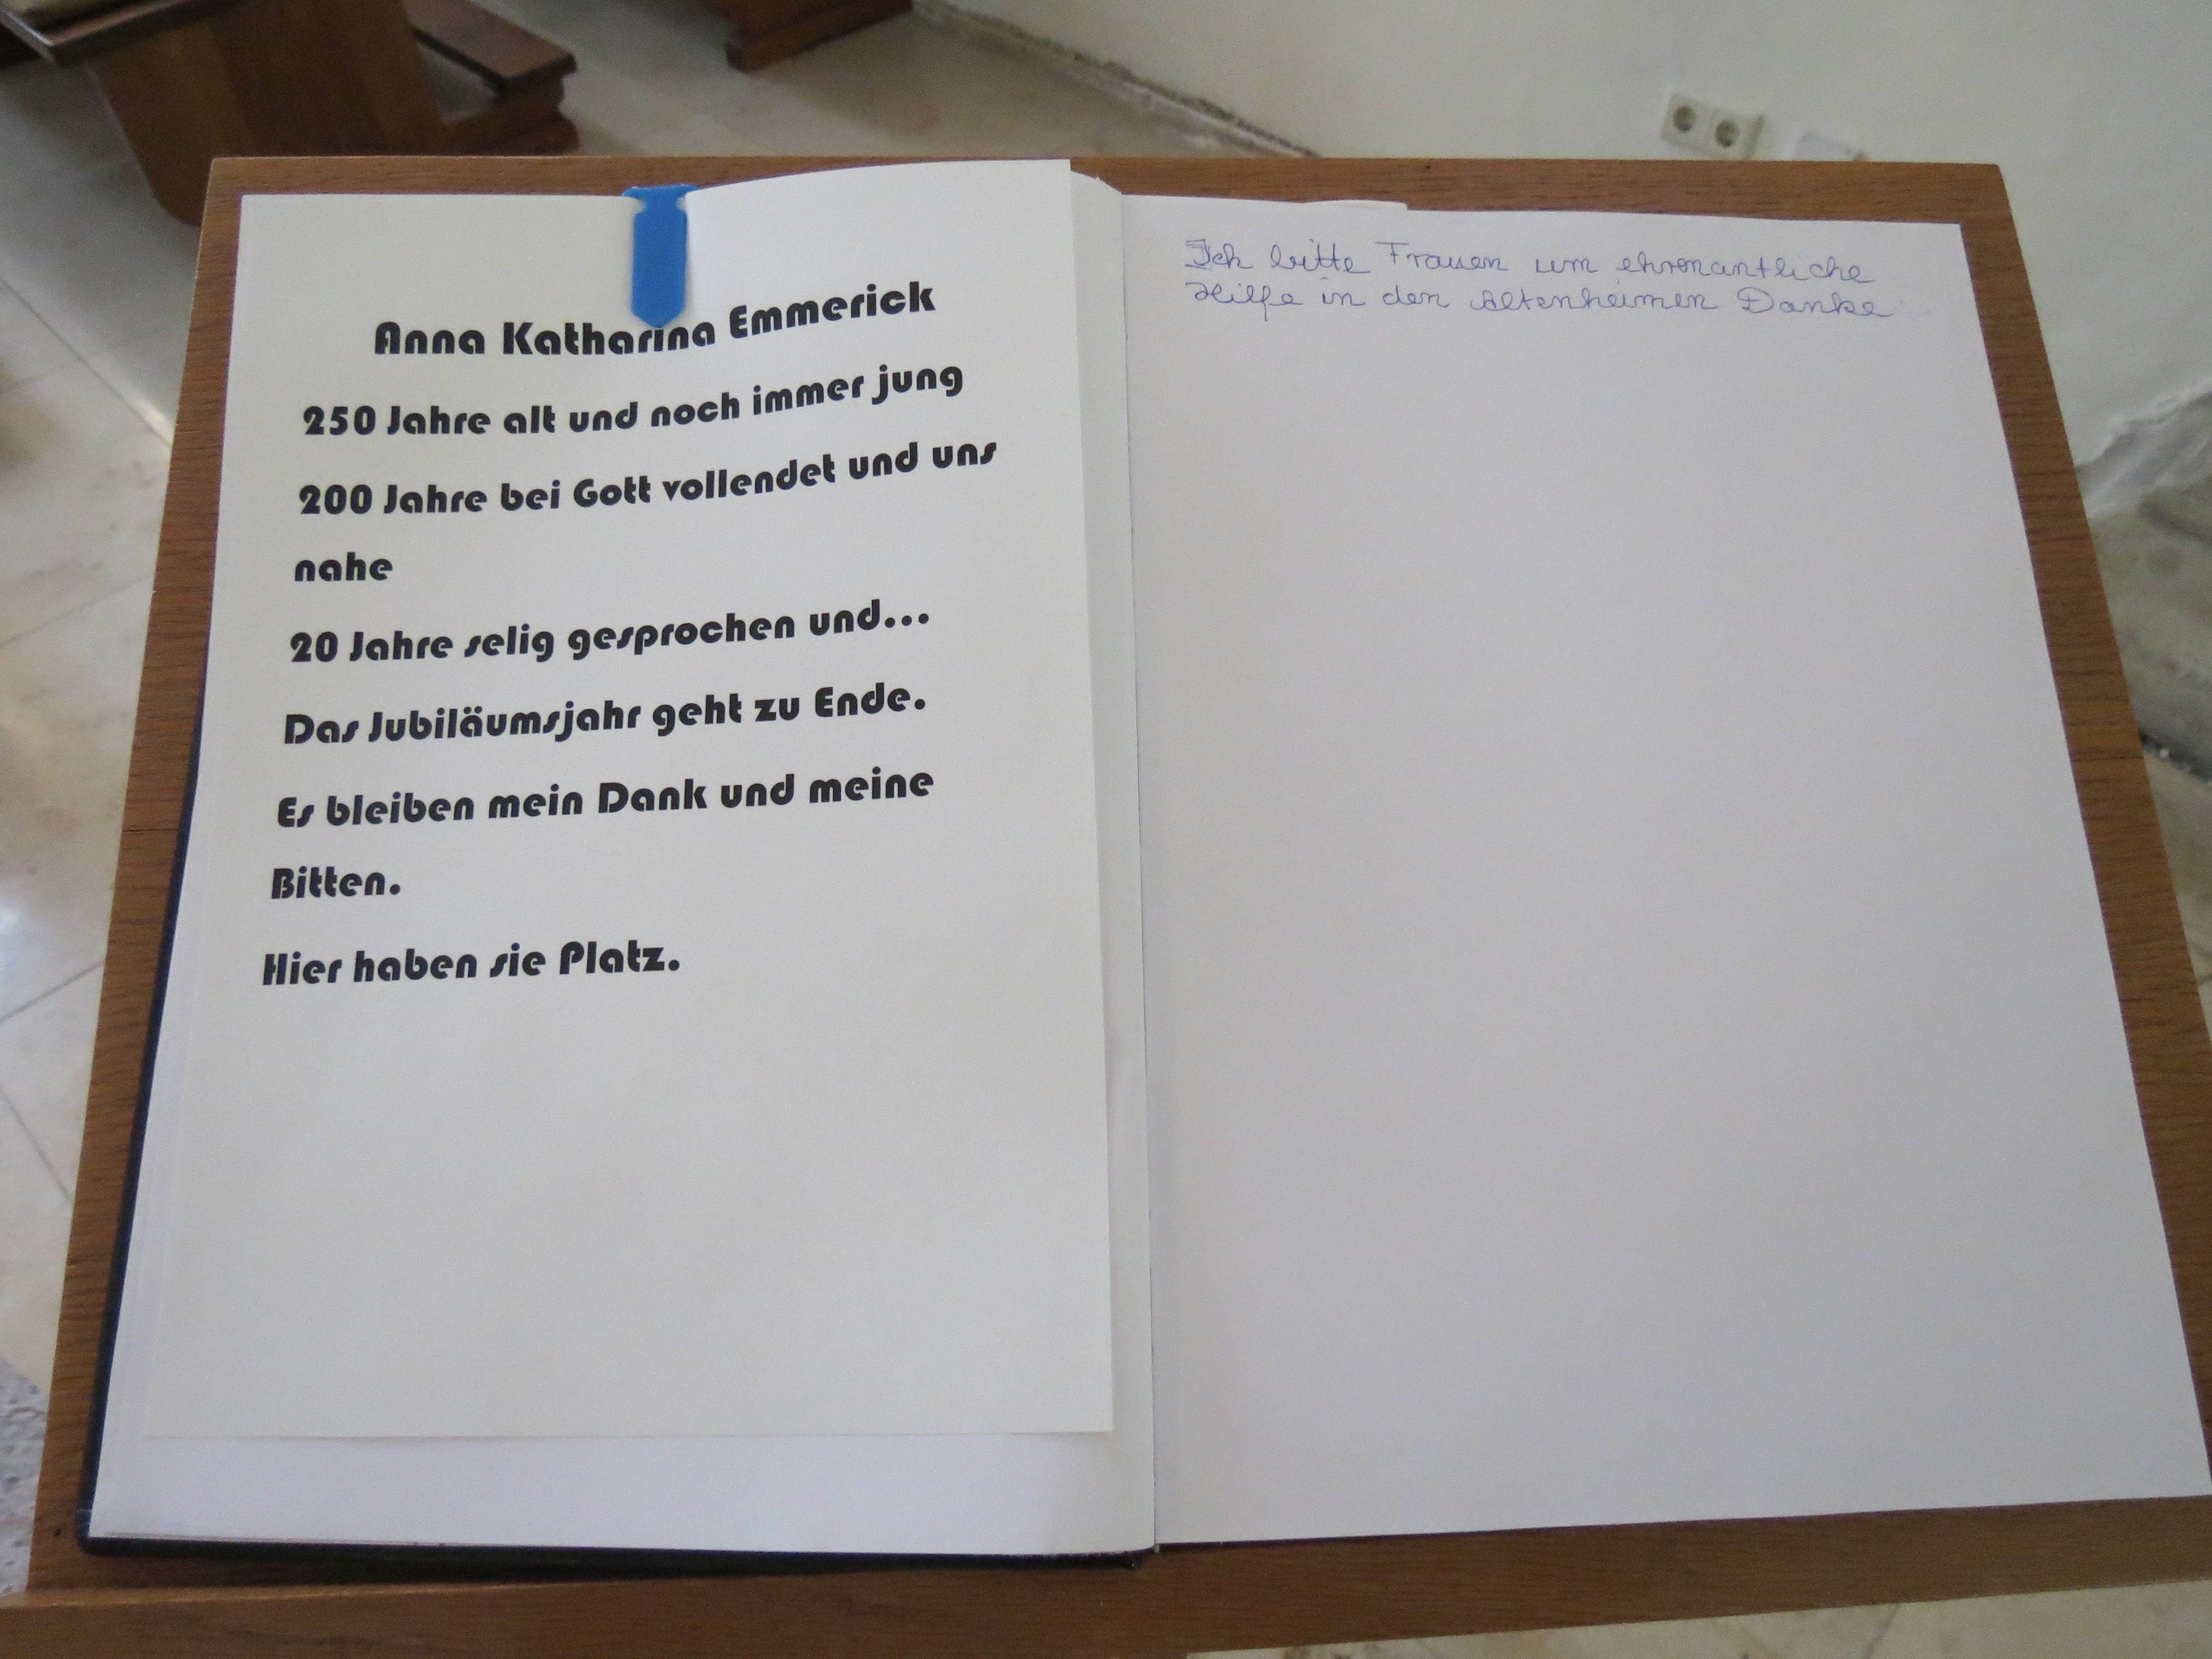 Anna Katharina Emmerick
250 Jahre alt und noch immer jung
200 Jahre bei Gott vollendet und uns
nahe
20 Jahre selig gesprochen und...
Das Jubiläumsjahr geht zu Ende.
Es bleiben mein Dank und meine
Bitten.
Hier haben sie Platz.
Ich bitte Frauen um ehrenantliche
Hilfe in den Altenheimen Danke